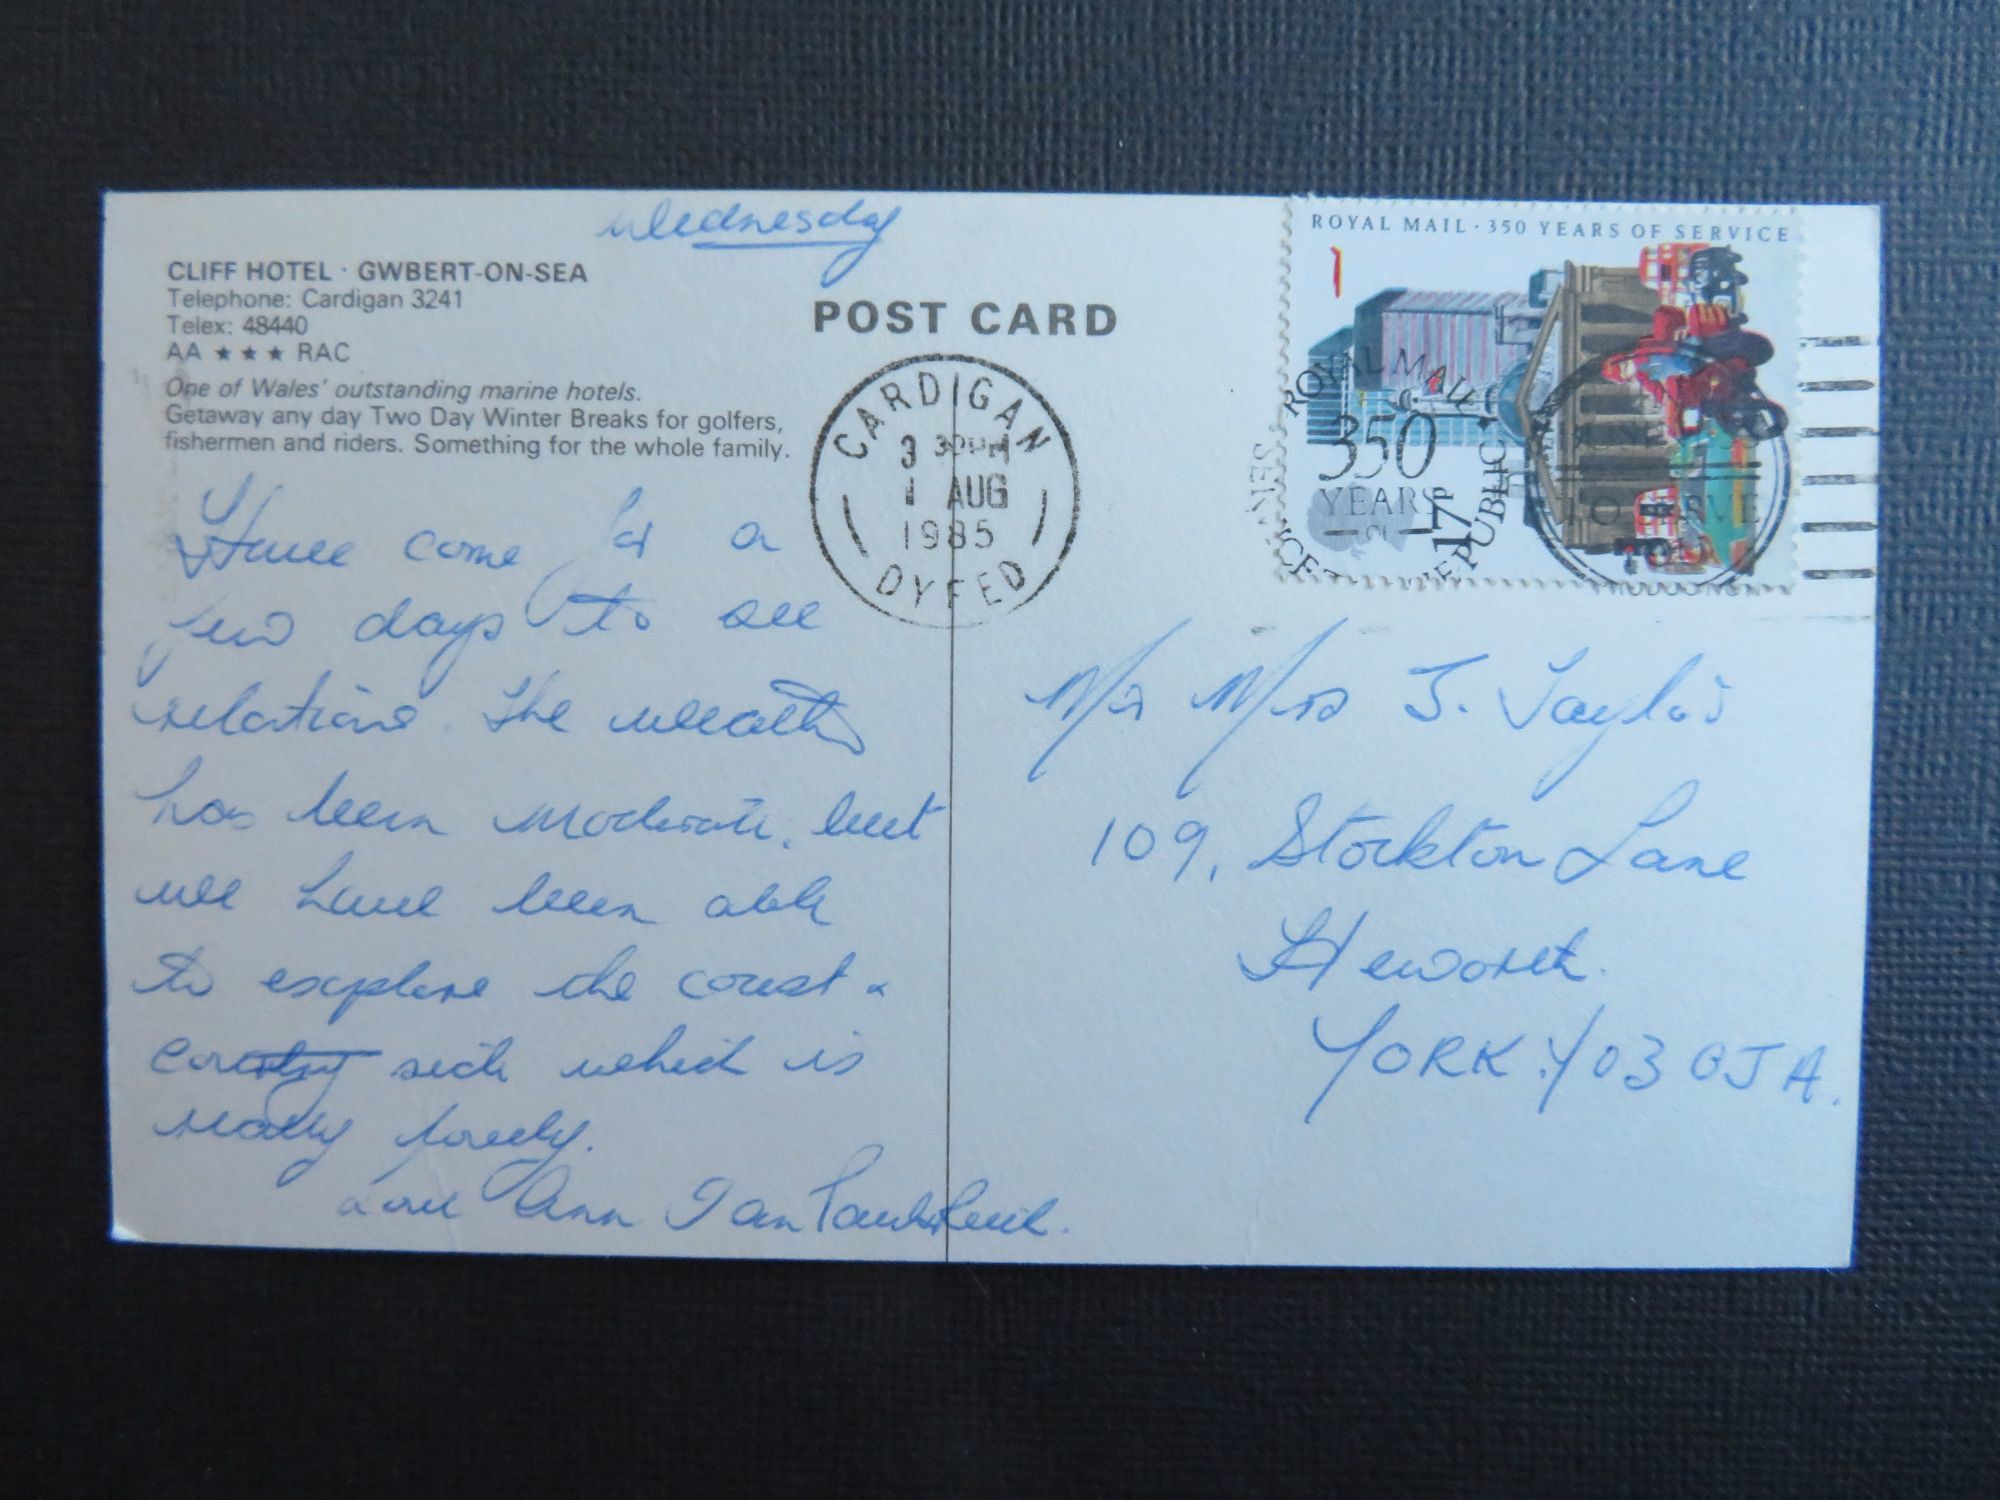 Wednesday
CLIFF HOTEL · GWBERT-ON-SEA
Telephone: Cardigan 3241
Telex: 48440
AA ★★★ RAC
One of Wales' outstanding marine hotels.
Getaway any day Two Day Winter Breaks for golfers,
fishermen and riders. Something for the whole family.
POST CARD
CARDIGAN
3 30PM
1 AUG
1985
DYFED
ROYAL MAIL · 350 YEARS OF SERVICE
17P
ROYAL MAIL
350
YEARS
Have come for a
few days to see
relations. The weather
has been moderate, but
we have been able
to explore the coast &
country side which is
really lovely.
Love Ann Ian Paul &
Mr Mrs J. Taylor
109, Stockton Lane
Heworth.
YORK. YO3 0JA.